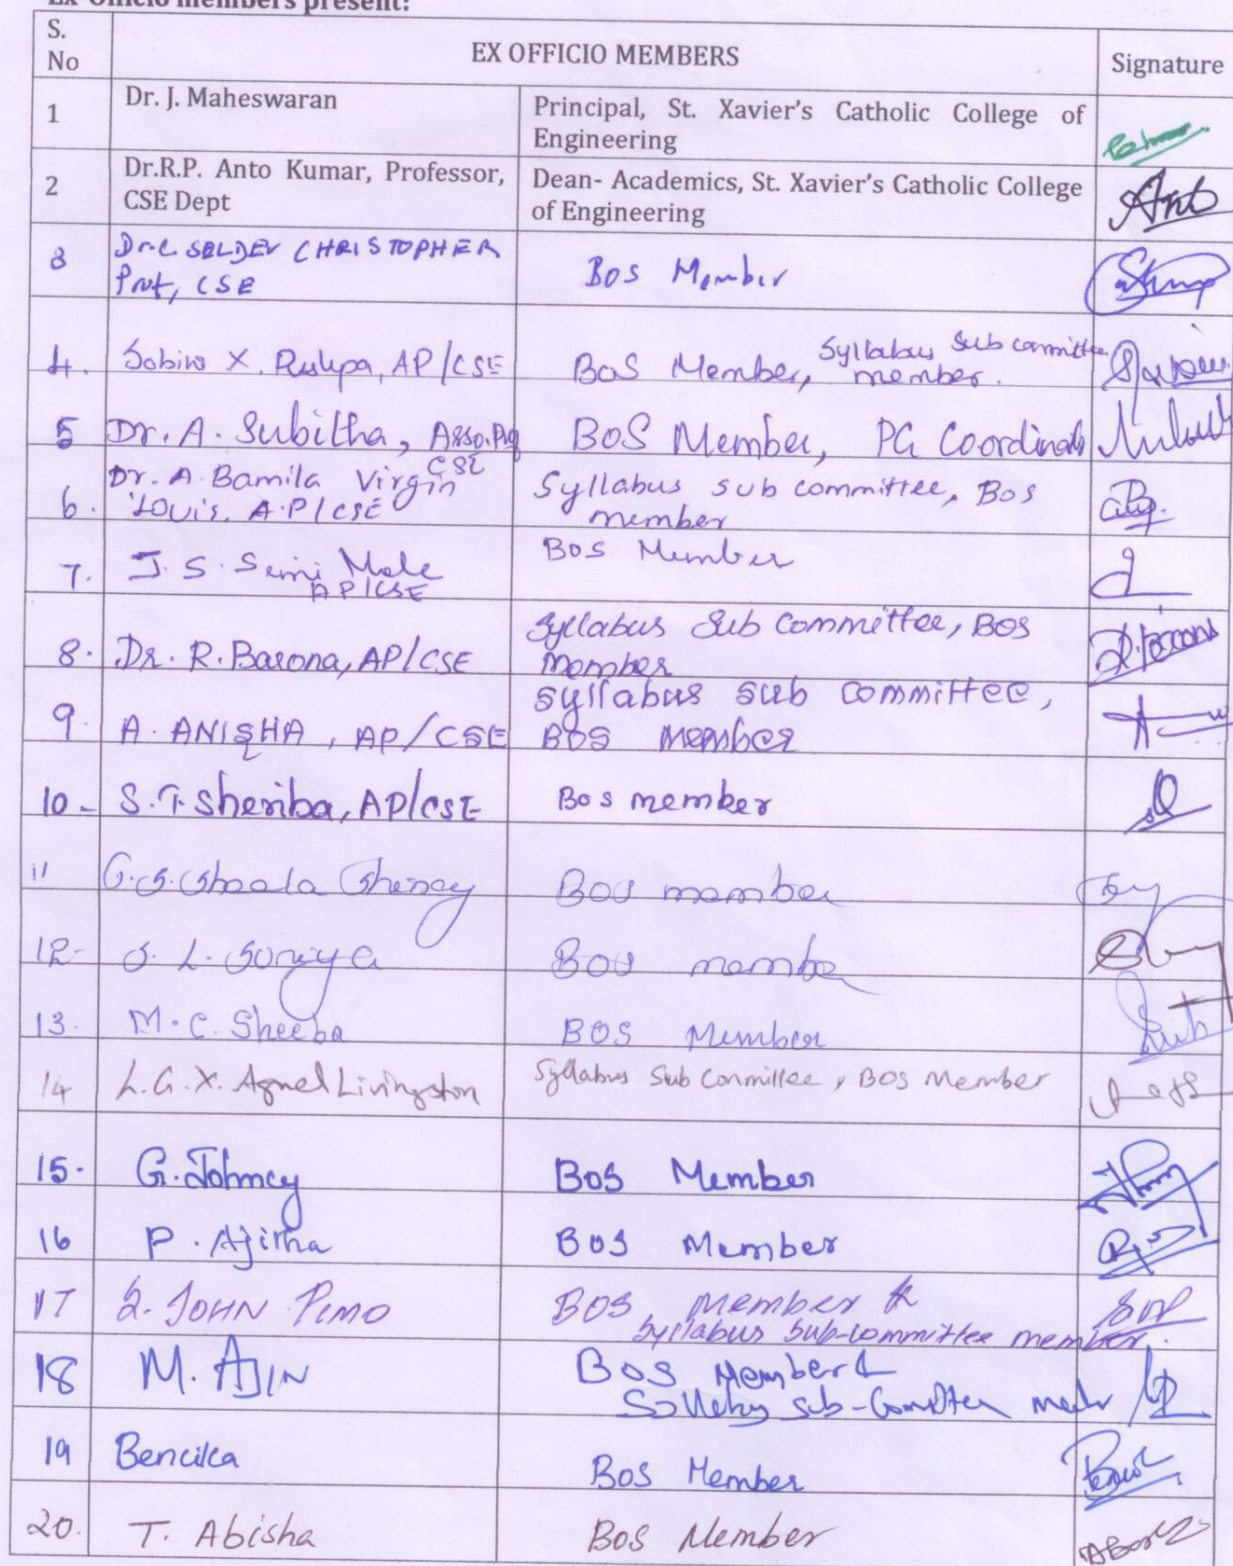 Ex-Officio members present:
S.
No
EX OFFICIO MEMBERS
Signature
1
Dr. J. Maheswaran
Principal, St. Xavier's Catholic College of
Engineering
2
Dr.R.P. Anto Kumar, Professor,
CSE Dept
Dean- Academics, St. Xavier's Catholic College
of Engineering
Anto
3
Dr. C. SELDEV CHRISTOPHER
Prof, CSE
BOS Member
4.
Sobin X. , AP/CSE
BoS Member, Syllabus Sub committee
member.
5
Dr. A. Subitha, Asso.Prof
CSE
BoS Member, PG Coordinator
6.
Dr. A. Bamila Virgin
Louis. A.P/CSE
Syllabus sub committee, Bos
member
7.
J. S. Semi Mole
AP/CSE
BOS Member
8.
Dr. R. Barona, AP/CSE
Syllabus Sub Committee, BOS
Member
9.
A. ANISHA, AP/CSE
Syllabus sub committee,
BOS member
10-
S.T. Sheriba, AP/CSE
Bos member
11
G.S. Sheela Shiney
BOS member
12-
S. L. Soniya
BOS member
13.
M.C. Sheeba
BOS Member
14
L.G.X. Agnel Livingston
Syllabus Sub Committee, BOS Member
15.
G. Johncy
BOS Member
16
P. Ajitha
BOS Member
17
S. JOHN PIMO
BOS Member &
Syllabus Sub-committee member.
18
M. AJIN
BOS Member &
Sub-Committee
19
Bencilka
BOS Member
20.
T. Abisha
BOS Member